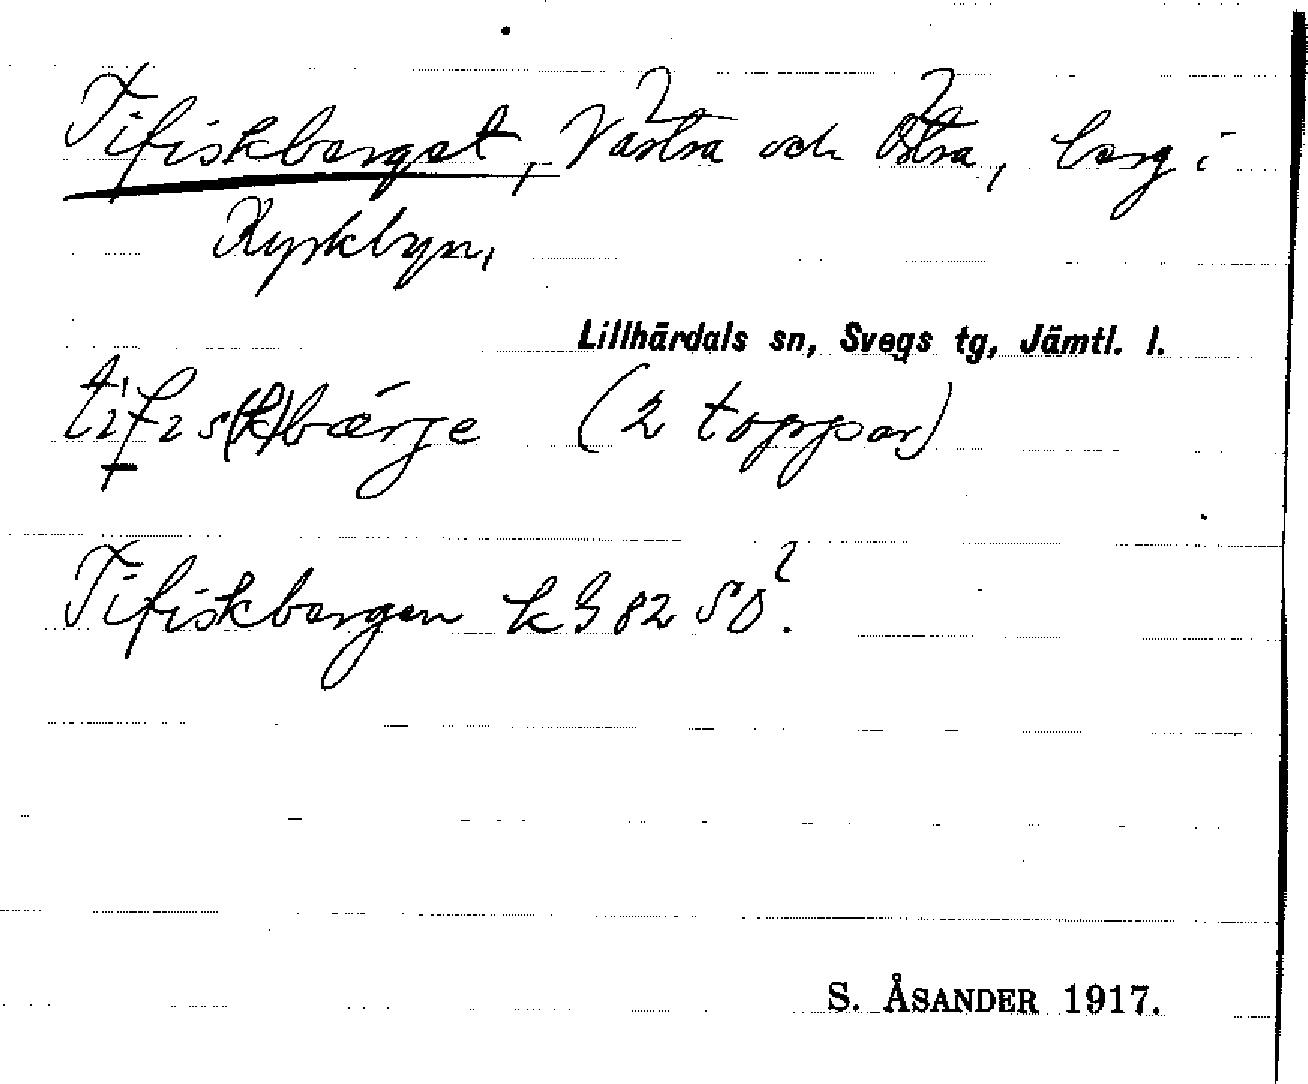 Tifiskberget, Västra och Östra, berg i
Kyrkbyn,
Lillhärdals sn, Svegs tg, Jämtl. l.
(2 toppar)
Tifiskbergen k 982 SO?.
S. ÅSANDER 1917.